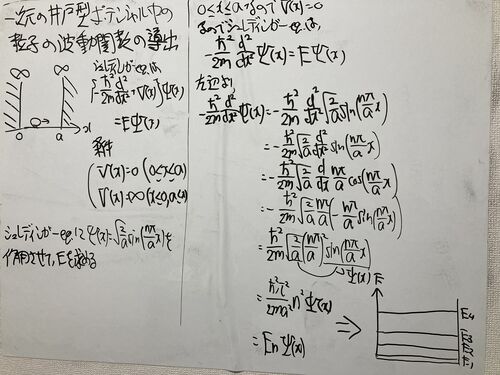 一次元の井戸型ポテンシャル中の
粒子の波動関数の導出
シュレディンガーeq.は
{-ℏ²/2m d²/dx² + V(x)}ψ(x)
=Eψ(x)
0 a x
条件
V(x)=0 (0≤x≤a)
V(x)=∞ (x≤0, a≤x)
シュレディンガーeq.にψ(x)=√(2/a) sin(nπ/a x)を
作用させて、Eを求める
0≤x≤aなのでV(x)=0
なのでシュレディンガーeq.は
-ℏ²/2m d²/dx² ψ(x)=Eψ(x)
左辺より
-ℏ²/2m d²/dx² ψ(x)=-ℏ²/2m d²/dx² √(2/a) sin(nπ/a x)
=-ℏ²/2m √(2/a) d²/dx² sin(nπ/a x)
=-ℏ²/2m √(2/a) d/dx nπ/a cos(nπ/a x)
=-ℏ²/2m √(2/a) nπ/a (-nπ/a sin(nπ/a x))
=ℏ²/2m √(2/a) (nπ/a)² sin(nπ/a x)
ψ(x)
=ℏ²π²/2ma² n² ψ(x)
=Enψ(x)
⇒
E
E4
E3
E2
E1